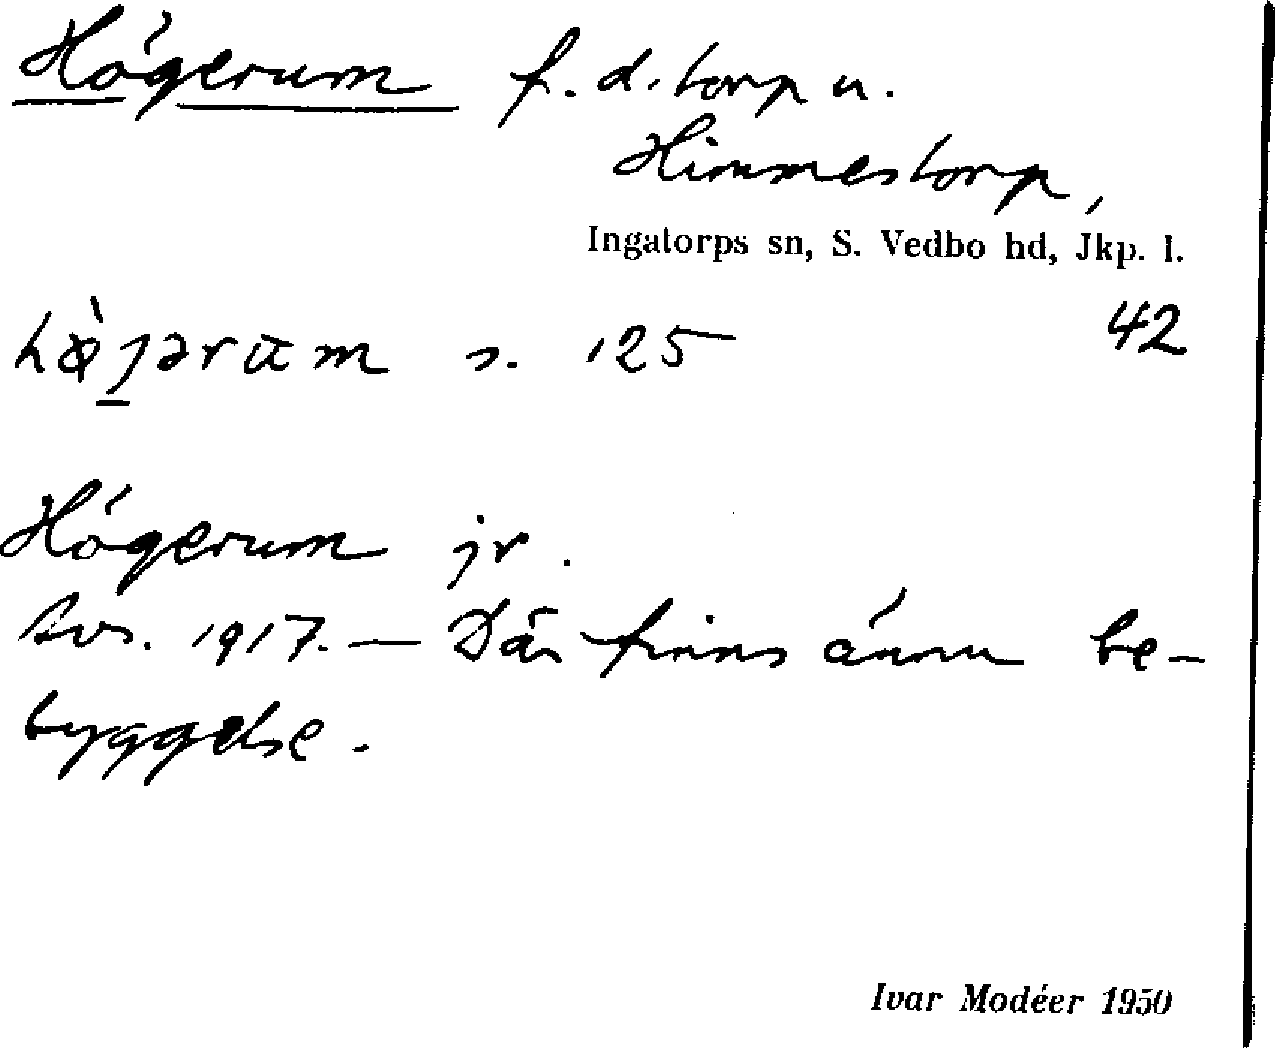 Högerum f. d. torp u.
Himmestorp,
Ingatorps sn, S. Vedbo hd, Jkp. l.
s. 125 42
Högerum jr.
Avs. 1917. — Där finns ännu be-
byggelse.
Ivar Modéer 1950